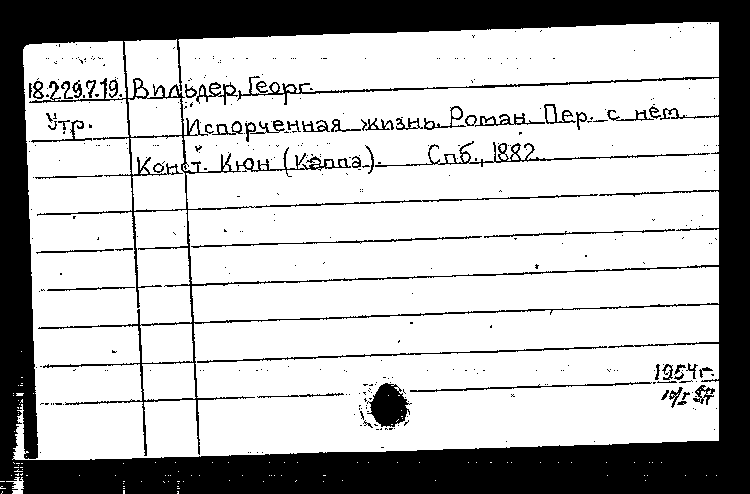 18.229.7.19. Вильдер, Георг.
Утр. Испорченная жизнь. Роман. Пер. с нем.
Конст. Кюн (Каппа). Спб., 1882.
1954 г.